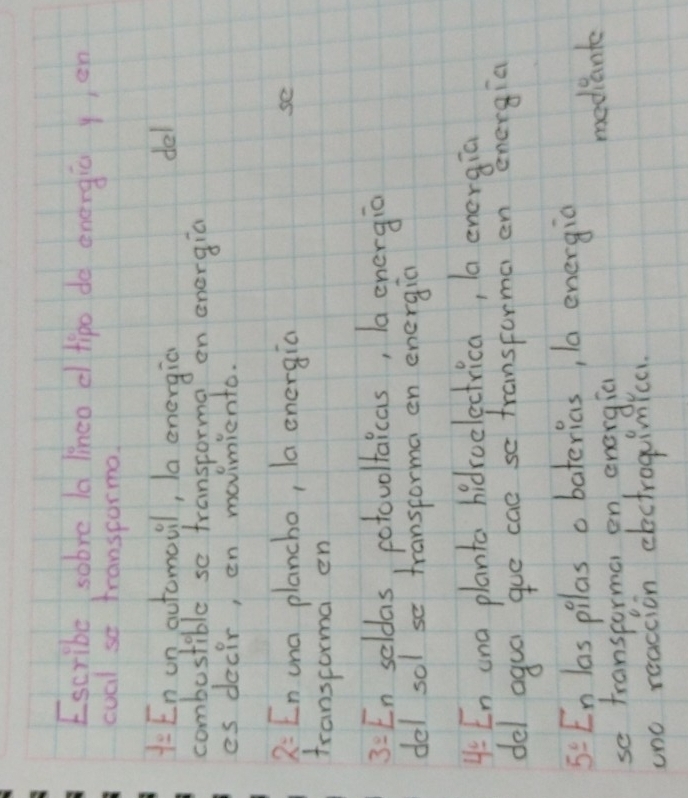 Escribe sobre la linea el tipo de energia y, en
cual se transforma.
1= En un automovil, la energia del
combustible se transforma en energia
es decir, en movimiento.
2= En una plancha, la energia se
transforma en
3= En seldas fotovoltaicas, la energia
del sol se transforma en energia
4= En una planta hidroelectrica, la energia
del agua que cae se transforma en energia
5= En las pilas o baterias, la energia mediante
se transforma en energia
una reacción electroquimica.